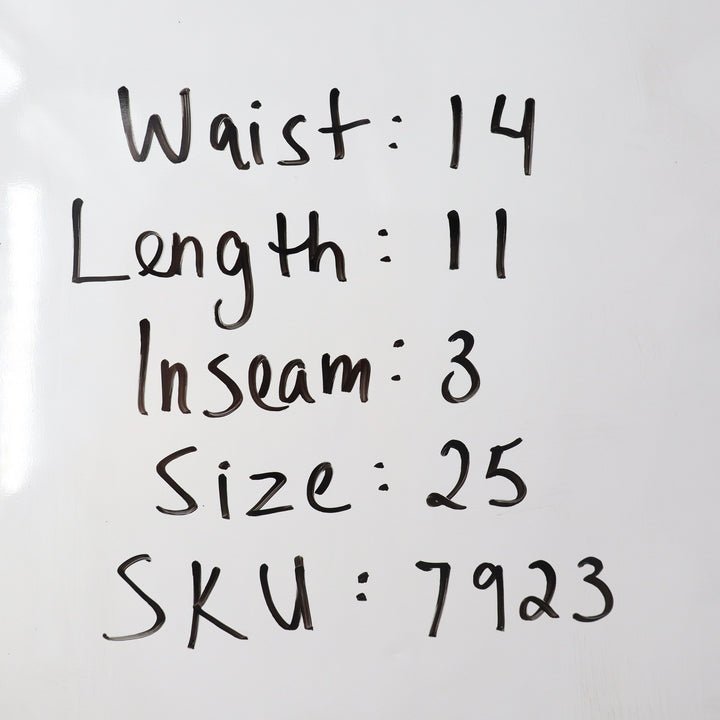 Waist: 14
Length: 11
Inseam: 3
Size: 25
SKU: 7923